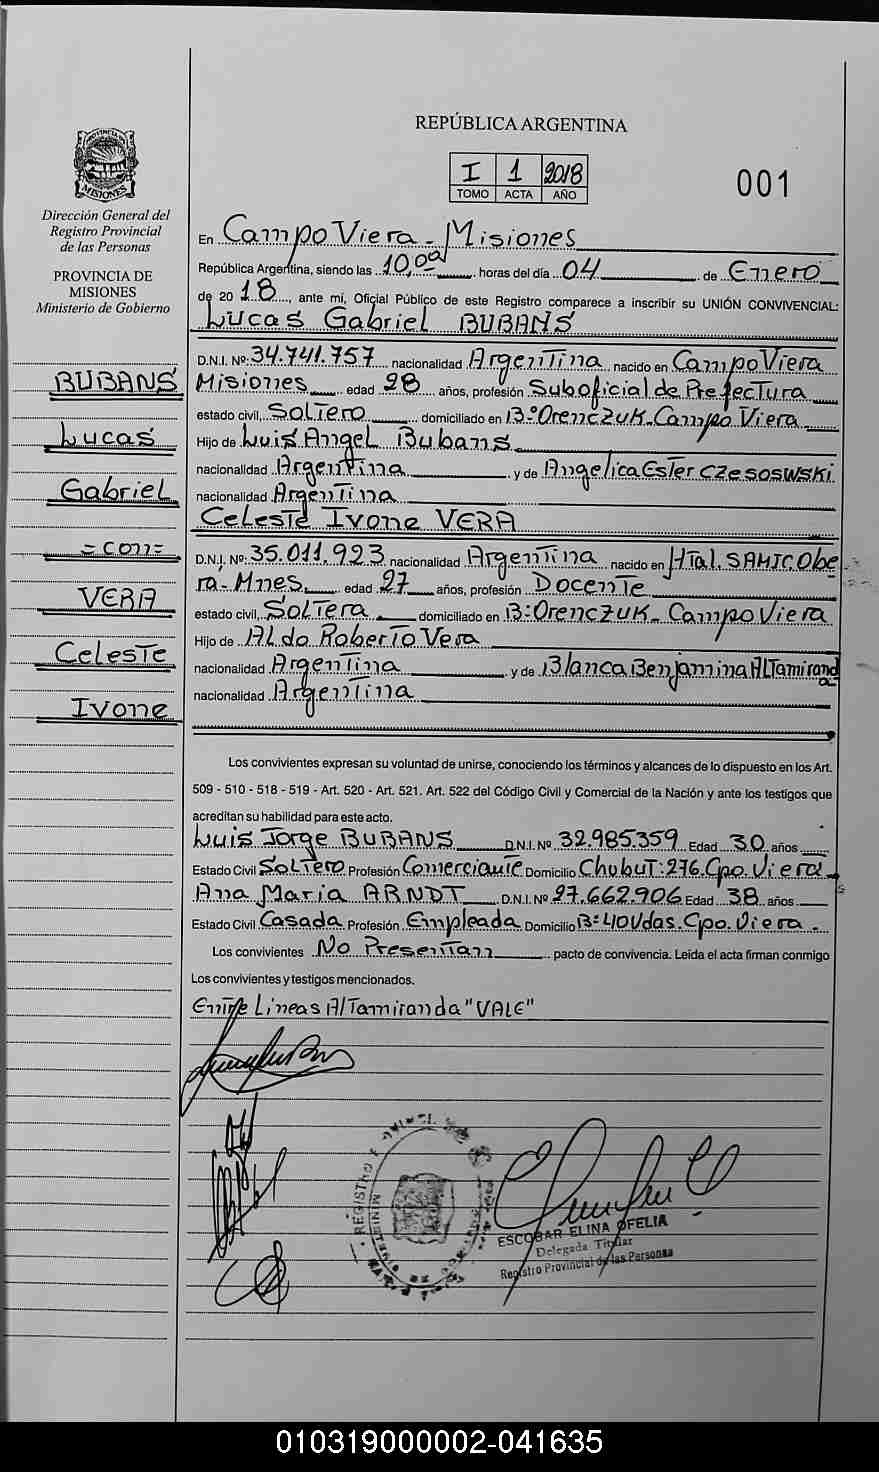 REPÚBLICA ARGENTINA
I 1 2018
TOMO ACTA AÑO
001
PROVINCIA DE
MISIONES
Dirección General del
Registro Provincial
de las Personas
PROVINCIA DE
MISIONES
Ministerio de Gobierno
BUBANS
Lucas
Gabriel
=con=
VERA
Celeste
Ivone
En Campo Viera - Misiones
República Argentina, siendo las 10,00 horas del día 04 de Enero
de 2018, ante mí, Oficial Público de este Registro comparece a inscribir su UNIÓN CONVIVENCIAL:
Lucas Gabriel BUBANS
D.N.I. Nº: 34.741.757 nacionalidad Argentina nacido en Campo Viera
Misiones edad 28 años, profesión Suboficial de Prefectura
estado civil, Soltero domiciliado en B:Orenczuk-Campo Viera
Hijo de Luis Angel Bubans
nacionalidad Argentina y de Angelica Ester Czesoswski
nacionalidad Argentina
Celeste Ivone VERA
D.N.I. Nº: 35.011.923 nacionalidad Argentina nacido en Htal. SAMIC Obe
ra- Mnes. edad 27 años, profesión Docente
estado civil, Soltera domiciliado en B:Orenczuk- Campo Viera
Hijo de Aldo Roberto Vera
nacionalidad Argentina y de Blanca Benjamina Altamirand
a
nacionalidad Argentina
Los convivientes expresan su voluntad de unirse, conociendo los términos y alcances de lo dispuesto en los Art.
509 - 510 - 518 - 519 - Art. 520 - Art. 521. Art. 522 del Código Civil y Comercial de la Nación y ante los testigos que
acreditan su habilidad para este acto.
Luis Jorge BUBANS D.N.I. Nº 32.985.359 Edad 30 años
Estado Civil Soltero Profesión Comerciante Domicilio Chubut:276.Cpo.Viera
Ana Maria ARNDT D.N.I. Nº 27.662.906 Edad 38 años
Estado Civil Casada Profesión Empleada Domicilio B:40Vdas.Cpo.Viera.
Los convivientes No Presentan pacto de convivencia. Leida el acta firman conmigo
Los convivientes y testigos mencionados.
Entre Lineas Altamiranda "VALE"
REGISTRO
ESCOBAR ELINA OFELIA
Delegada Titular
Registro Provincial de las Personas
010319000002-041635